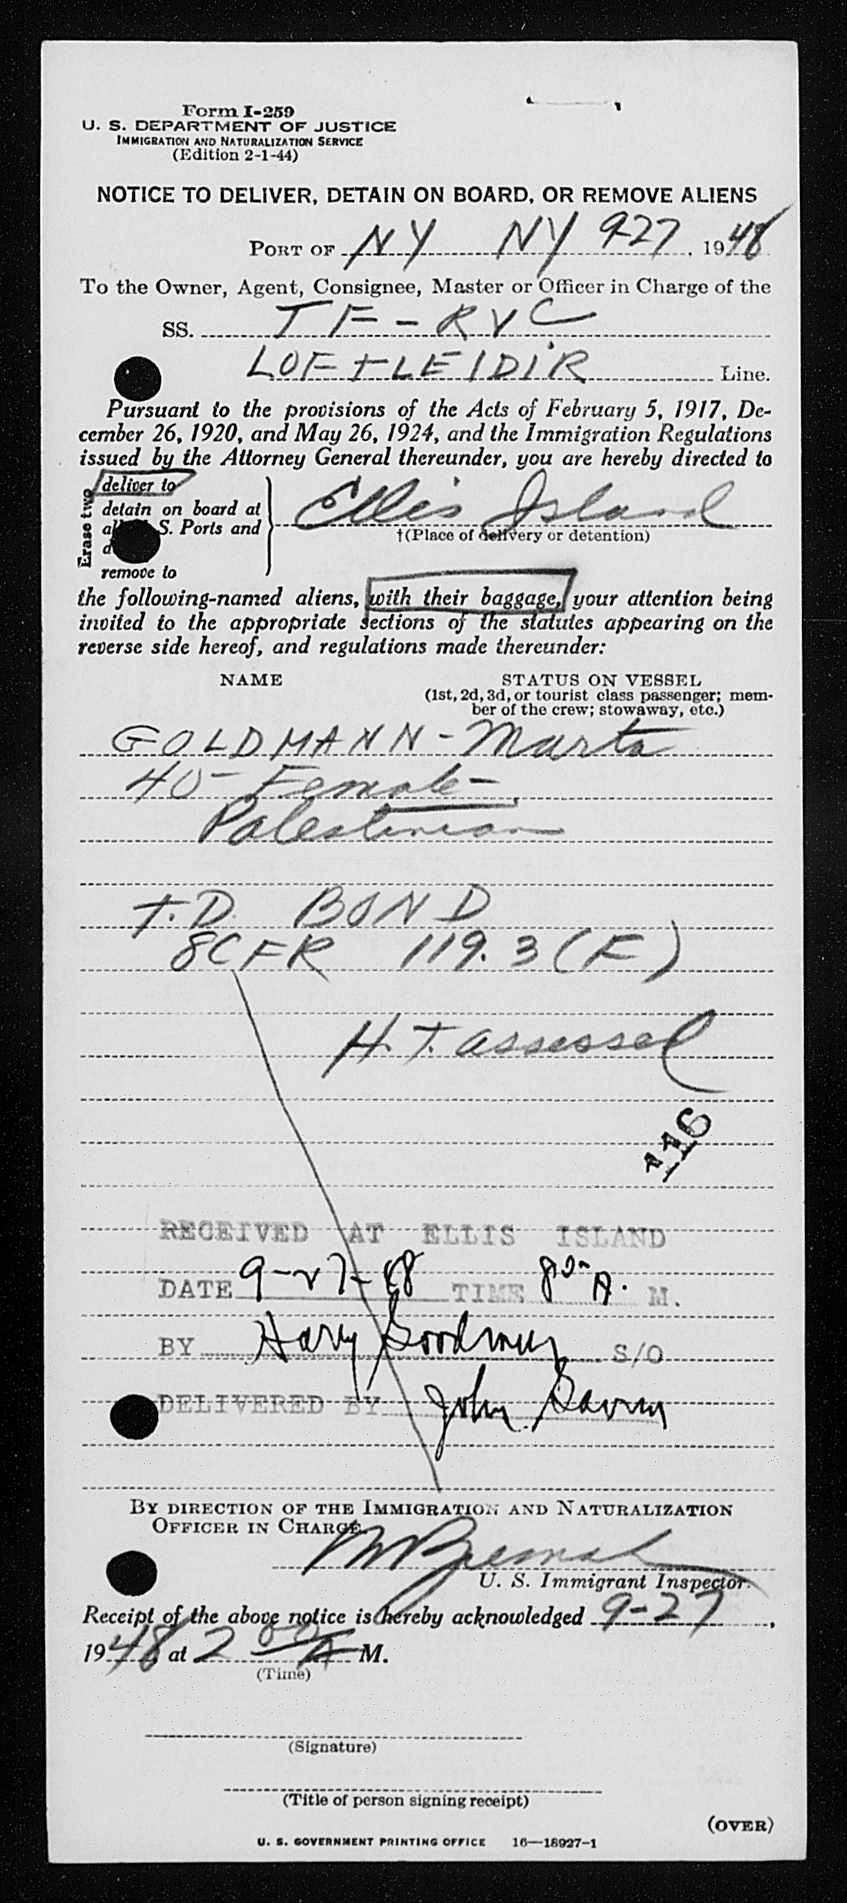 Form I-259
U. S. DEPARTMENT OF JUSTICE
IMMIGRATION AND NATURALIZATION SERVICE
(Edition 2-1-44)
NOTICE TO DELIVER, DETAIN ON BOARD, OR REMOVE ALIENS
PORT OF NY NY 9-27, 1948
To the Owner, Agent, Consignee, Master or Officer in Charge of the
SS. TF-RVC
LOFTLEIDIR Line.
Pursuant to the provisions of the Acts of February 5, 1917, De-
cember 26, 1920, and May 26, 1924, and the Immigration Regulations
issued by the Attorney General thereunder, you are hereby directed to
Erase two
deliver to
detain on board at
S. Ports and
remove to
Ellis Island
†(Place of delivery or detention)
the following-named aliens, with their baggage, your attention being
invited to the appropriate sections of the statutes appearing on the
reverse side hereof, and regulations made thereunder:
NAME STATUS ON VESSEL
(1st, 2d, 3d, or tourist class passenger; mem-
ber of the crew; stowaway, etc.)
GOLDMANN - Marta
40 - Female -
Palestinian
T.D. BOND
8CFR 119.3 (F)
H.T. assessed
116
RECEIVED AT ELLIS ISLAND
DATE 9-27-48 TIME 8 A. M.
BY Harry S/O
DELIVERED BY John
BY DIRECTION OF THE IMMIGRATION AND NATURALIZATION
OFFICER IN CHARGE.
U. S. Immigrant Inspector.
Receipt of the above notice is hereby acknowledged 9-27,
1948, at 2 00 A M.
(Time)
(Signature)
(Title of person signing receipt)
(OVER)
U. S. GOVERNMENT PRINTING OFFICE 16—18927-1